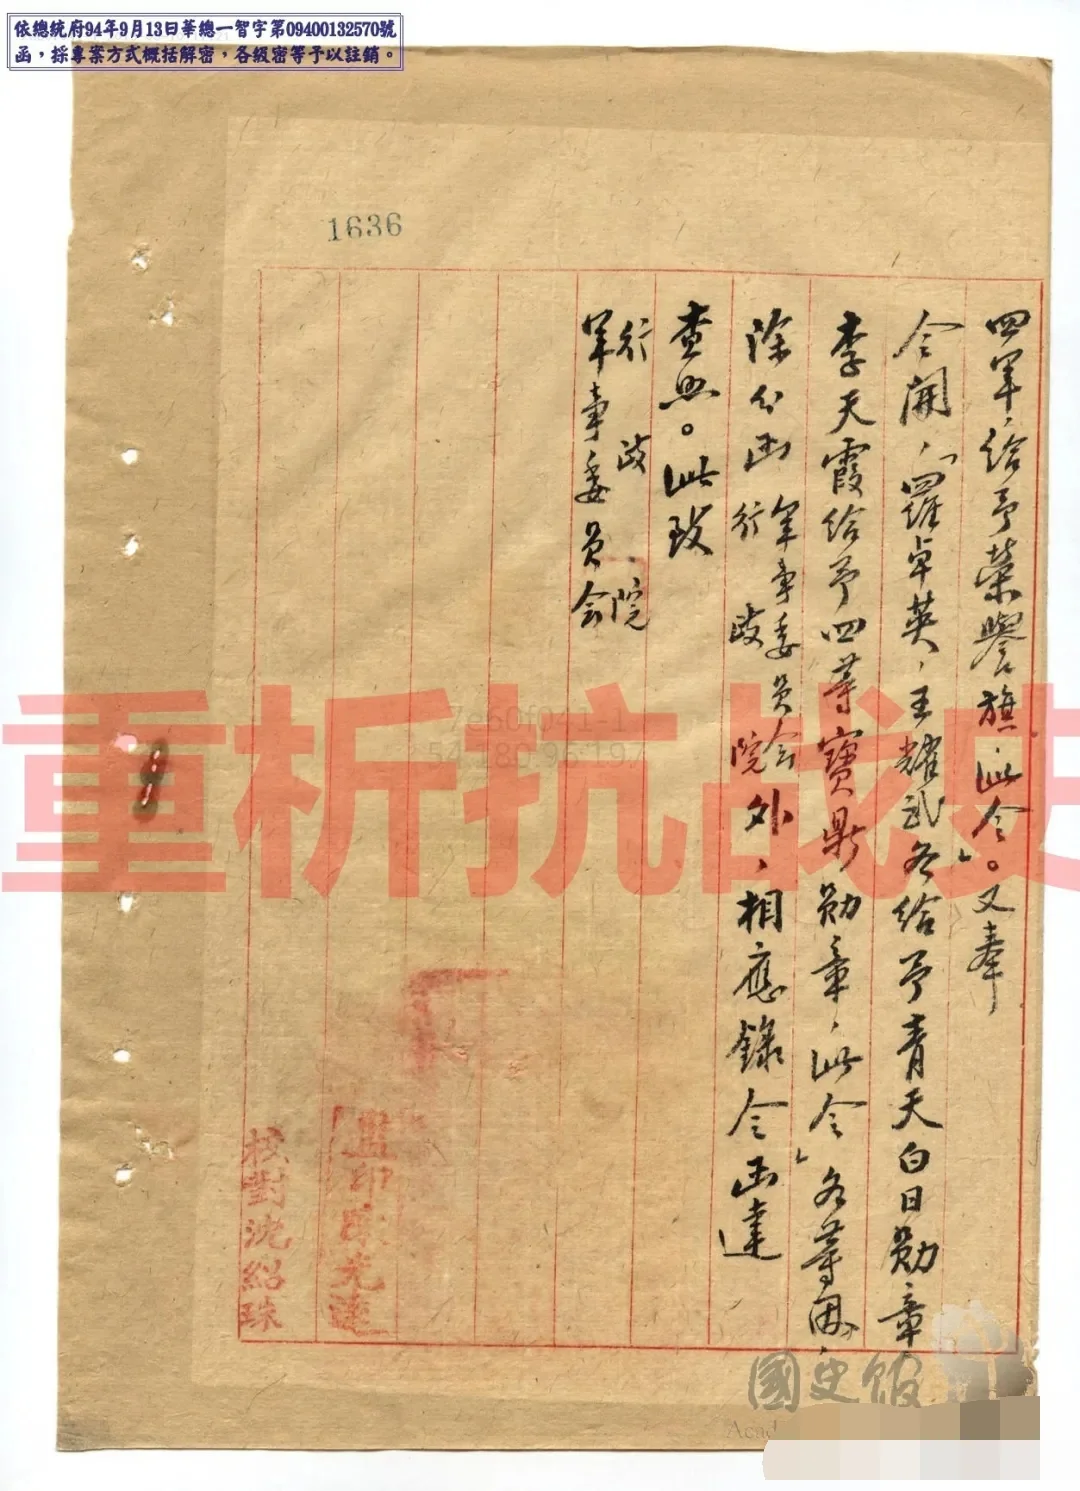 依總統府94年9月13日華總一智字第09400132570號
函，採專案方式概括解密，各級密等予以註銷。
1636
四軍，給予榮譽旗，此令」。又奉
令開，「羅卓英，王耀武各給予青天白日勛章，
李天霞給予四等寶鼎勛章，此令」各等因，
除分函
軍事委員會
行政院
外，相應錄令函達
查照。此致
行政院
軍事委員會
監印 光達
校對沈紹珠
重析抗战史
7e60f041-1
54.180.96.197
國史館
Acad